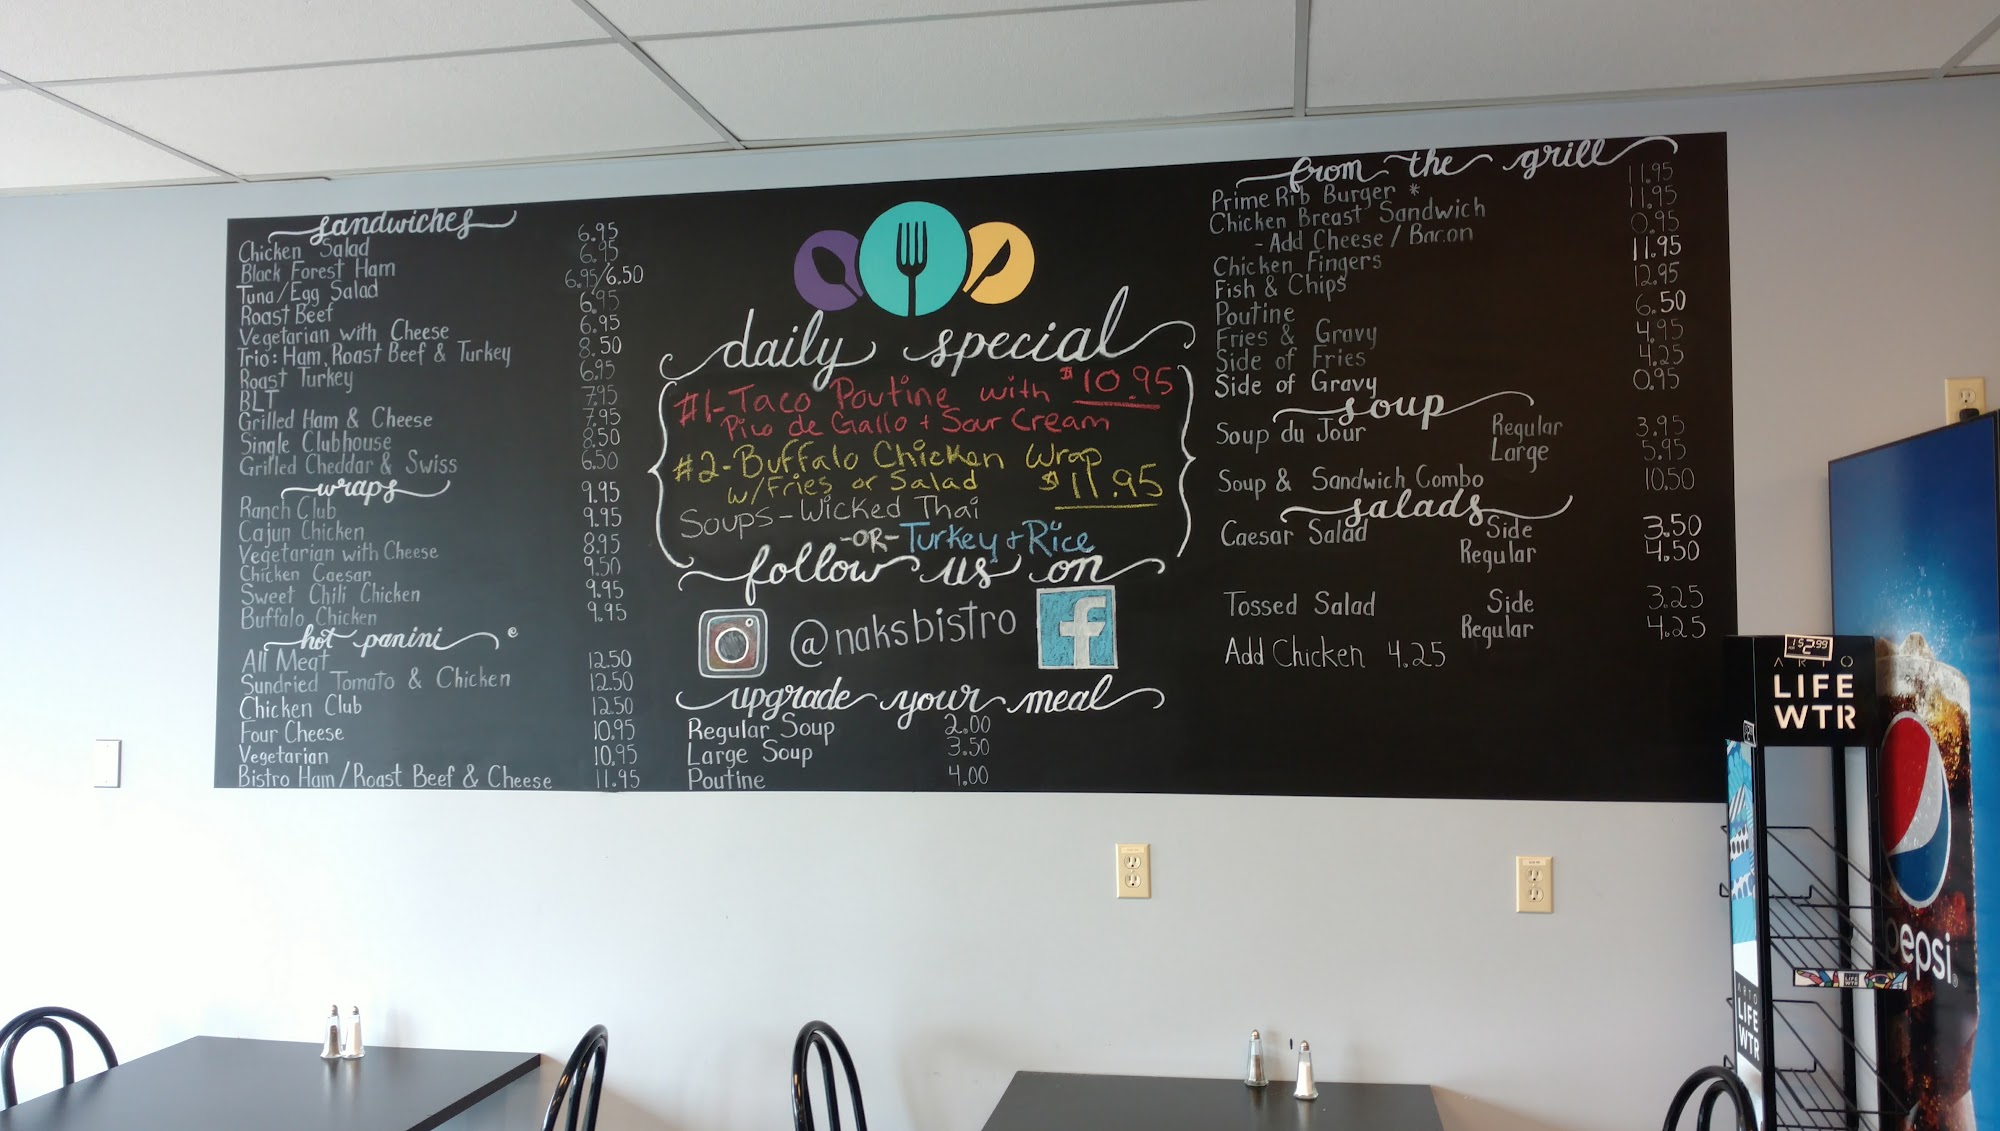 sandwiches
Chicken Salad 6.95
Black Forest Ham 6.95
Tuna/Egg Salad 6.95/6.50
Roast Beef 6.95
Vegetarian with Cheese 6.95
Trio: Ham, Roast Beef & Turkey 8.50
Roast Turkey 6.95
BLT 7.95
Grilled Ham & Cheese 7.95
Single Clubhouse 8.50
Grilled Cheddar & Swiss 6.50
wraps
Ranch Club 9.95
Cajun Chicken 9.95
Vegetarian with Cheese 8.95
Chicken Caesar 9.50
Sweet Chili Chicken 9.95
Buffalo Chicken 9.95
hot panini
All Meat 12.50
Sundried Tomato & Chicken 12.50
Chicken Club 12.50
Four Cheese 10.95
Vegetarian 10.95
Bistro Ham/Roast Beef & Cheese 11.95
daily special
#1-Taco Poutine with $10.95
Pico de Gallo + Sour Cream
#2-Buffalo Chicken Wrap
w/Fries or Salad $11.95
Soups-Wicked Thai
-OR- Turkey + Rice
follow us on
@naksbistro f
upgrade your meal
Regular Soup 2.00
Large Soup 3.50
Poutine 4.00
from the grill
Prime Rib Burger * 11.95
Chicken Breast Sandwich 11.95
- Add Cheese / Bacon 0.95
Chicken Fingers 11.95
Fish & Chips 12.95
Poutine 6.50
Fries & Gravy 4.95
Side of Fries 4.25
Side of Gravy 0.95
soup
Soup du Jour Regular 3.95
Large 5.95
Soup & Sandwich Combo 10.50
salads
Caesar Salad Side 3.50
Regular 4.50
Tossed Salad Side 3.25
Regular 4.25
Add Chicken 4.25
$2.99
ARTO
LIFE
WTR
pepsi
LIFE
WTR
ARTO
LIFE
WTR